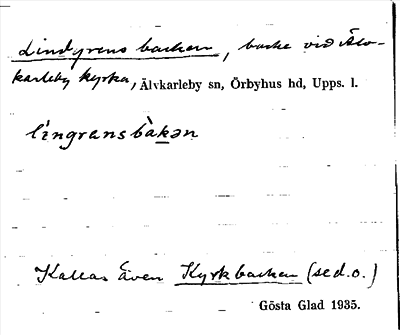 Lindgrens backen, backe vid Älv-
karleby kyrka, Älvkarleby sn, Örbyhus hd, Upps. l.
lìngransbàkən
Kallas även Kyrkbacken (se d.o.)
Gösta Glad 1935.